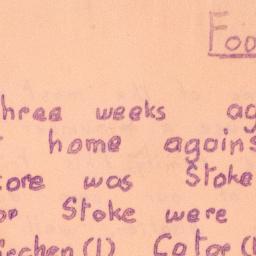 Foo
hree weeks ag
home agains
core was Stoke
or Stoke were
irchen(1) Cater(